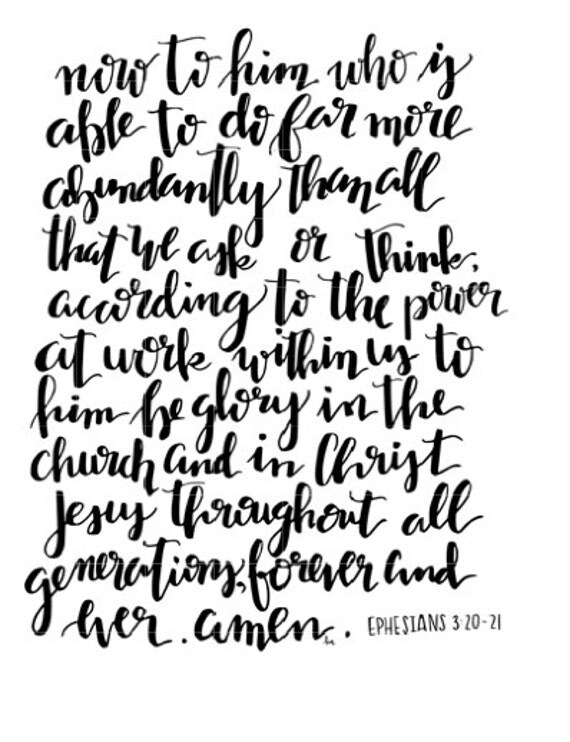 now to him who is
able to do far more
abundantly than all
that we ask or think,
according to the power
at work within us to
him be glory in the
church and in Christ
Jesus throughout all
generations, forever and
ever. amen. EPHESIANS 3:20-21